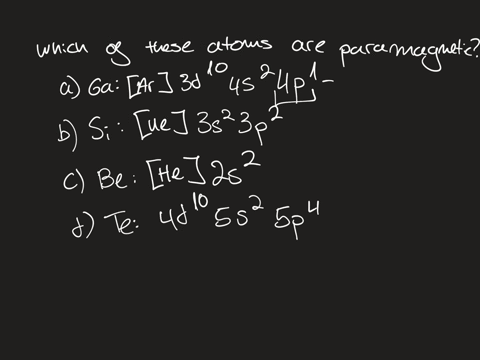 which of these atoms are paramagnetic?
a) Ga: [Ar] 3d¹⁰ 4s² 4p¹ -
b) Si: [Ne] 3s² 3p²
c) Be: [He] 2s²
d) Te: 4d¹⁰ 5s² 5p⁴